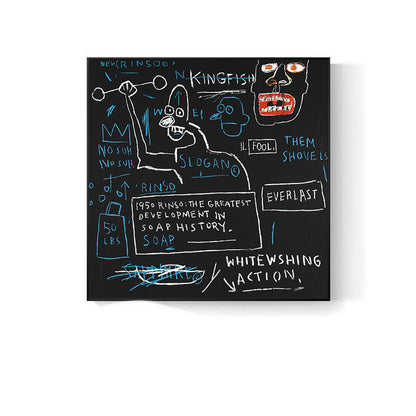 NEW RINSOO
N KINGFISH
W EL
NO SUH
NO SUH
SLOGAN ©
IL FOOL.
THEM
SHOVELS
RINSO
1950 RINSO: THE GREATEST
DEVELOPMENT IN
SOAP HISTORY.
SOAP
EVERLAST
50
LBS.
WHITEWSHING
ACTION.